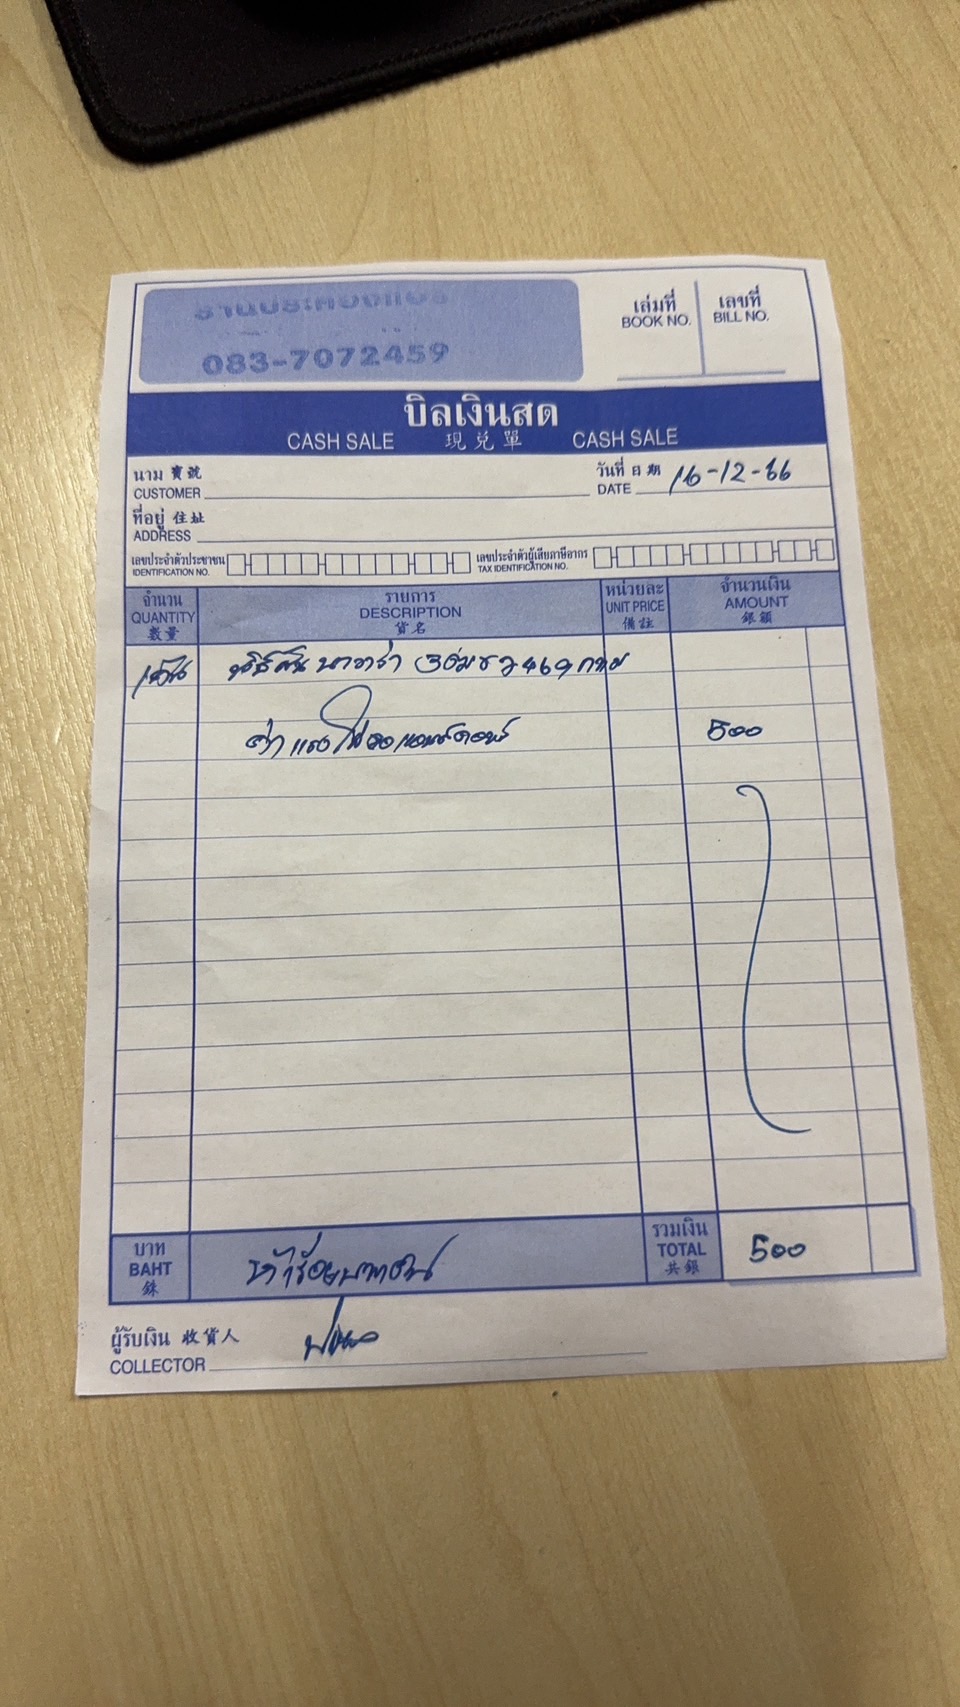 083-7072459
เล่มที่ เลขที่
BOOK NO. BILL NO.
บิลเงินสด
CASH SALE 現兌單 CASH SALE
นาม 寶號 วันที่ 日期 16-12-66
CUSTOMER DATE
ที่อยู่ 住址
ADDRESS
เลขประจำตัวประชาชน เลขประจำตัวผู้เสียภาษีอากร
IDENTIFICATION NO. TAX IDENTIFICATION NO.
จำนวน รายการ หน่วยละ จำนวนเงิน
QUANTITY DESCRIPTION UNIT PRICE AMOUNT
數量 貨名 備註 銀額
1คัน นิสสัน นาวาร่า 469 กทม
ค่าแรง 500
บาท ห้าร้อยบาทถ้วน รวมเงิน 500
BAHT TOTAL
銖 共銀
ผู้รับเงิน 收貨人
COLLECTOR